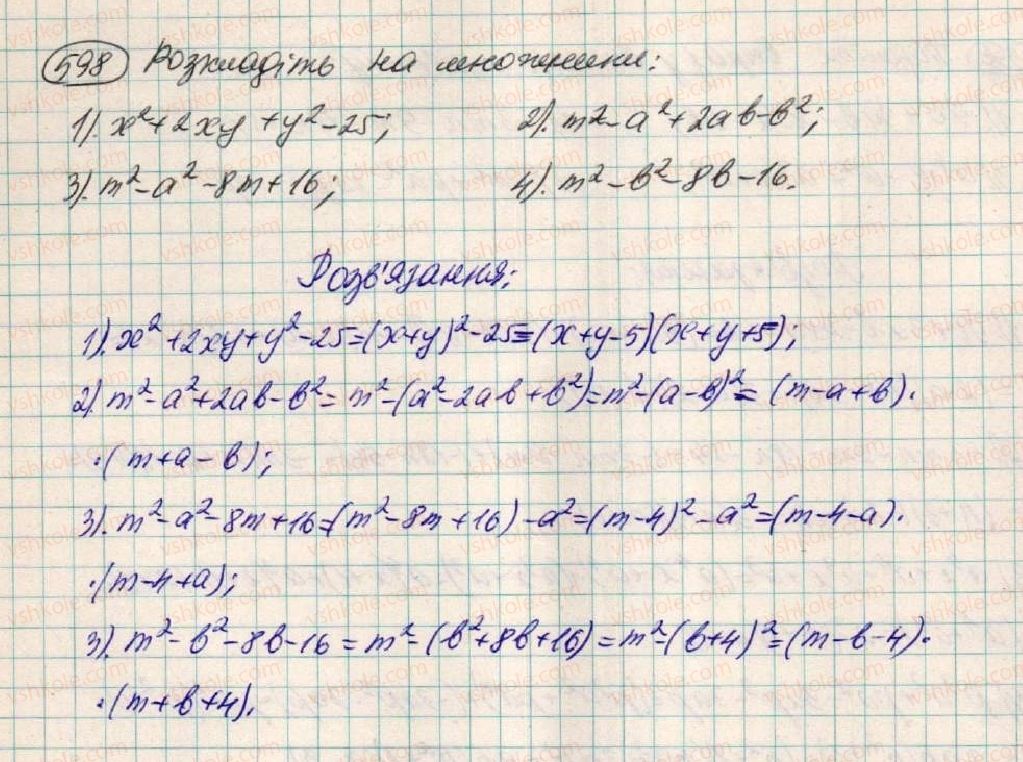 598 Розкладіть на множники:
1). x²+2xy+y²-25; 2). m²-a²+2ab-b²;
3). m²-a²-8m+16; 4). m²-b²-8b-16.
Розв'язання:
1). x²+2xy+y²-25=(x+y)²-25=(x+y-5)(x+y+5);
2). m²-a²+2ab-b²=m²-(a²-2ab+b²)=m²-(a-b)²=(m-a+b)·
·(m+a-b);
3). m²-a²-8m+16=(m²-8m+16)-a²=(m-4)²-a²=(m-4-a)·
·(m-4+a);
3). m²-b²-8b-16=m²-(b²+8b+16)=m²-(b+4)²=(m-b-4)·
·(m+b+4).